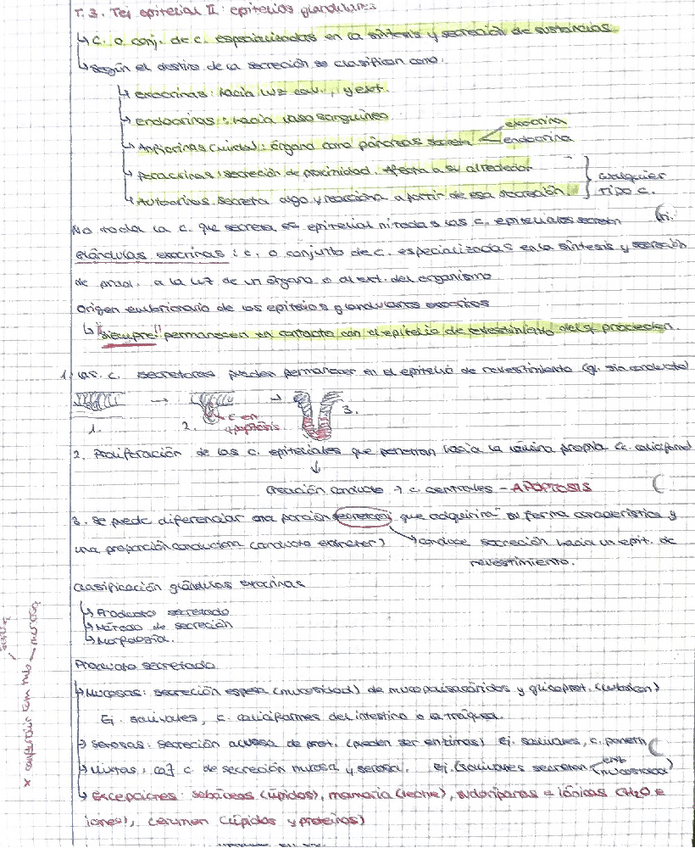 T. 3. Tej epitelial II: epitelios glandulares
↳ C. o conj. de c. especializadas en la síntesis y secreción de sustancias.
↳ Según el destino de la secreción se clasifican como:
↳ exocrinas: hacia luz cav., y ext.
↳ endocrinas: hacia vaso sanguíneo
↳ Anficrinas (mixta): órgano como páncreas secreta
exocrina
endocrina
↳ Paracrinas: secreción de proximidad. Afecta a su alrededor
↳ Autocrinas: secreta algo y reacciona a partir de esa secreción.
cualquier
tipo c.
No toda la c. que secreta es epitelial ni todas las c. epiteliales secretan
Glándulas exocrinas: c. o conjunto de c. especializadas en la síntesis y secreción
de prod. a la luz de un órgano o al ext. del organismo
Origen embrionario de los epitelios glandulares exocrinos
↳ "siempre" permanecen en contacto con el epitelio de revestimiento del q proceden.
1. Las c. secretoras pueden permanecer en el epitelio de revestimiento (g. sin conducto)
1.
2.
c en
apoptosis
3.
2. Proliferación de las c. epiteliales que penetran hacia la lámina propia
↓
creación conducto → c. centrales - APOPTOSIS
3. Se puede diferenciar una porción secretora que adquirirá su forma característica y
una proporción conductora (conducto excretor)
conduce secreción hacia un epit. de
revestimiento.
Clasificación glándulas exocrinas
↳ Producto secretado
↳ Método de secreción
↳ Morfología.
Producto secretado
↳ Mucosas: secreción espesa (mucosidad) de mucopolisacáridos y glicoprot. (lubrican)
Ej. salivales, c. caliciformes del intestino o la tráquea.
↳ Serosas: secreción acuosa de prot. (pueden ser enzimas) Ej. salivales, c. paneth
↳ Mixtas: c de secreción mucosa y serosa. Ej. (salivales secretan
mucosidad)
↳ Excepciones: sebáceas (lípidos), mamaria (leche), sudoríparas = iónicas (H₂O e
iones), cerumen (lípidos y proteínas)